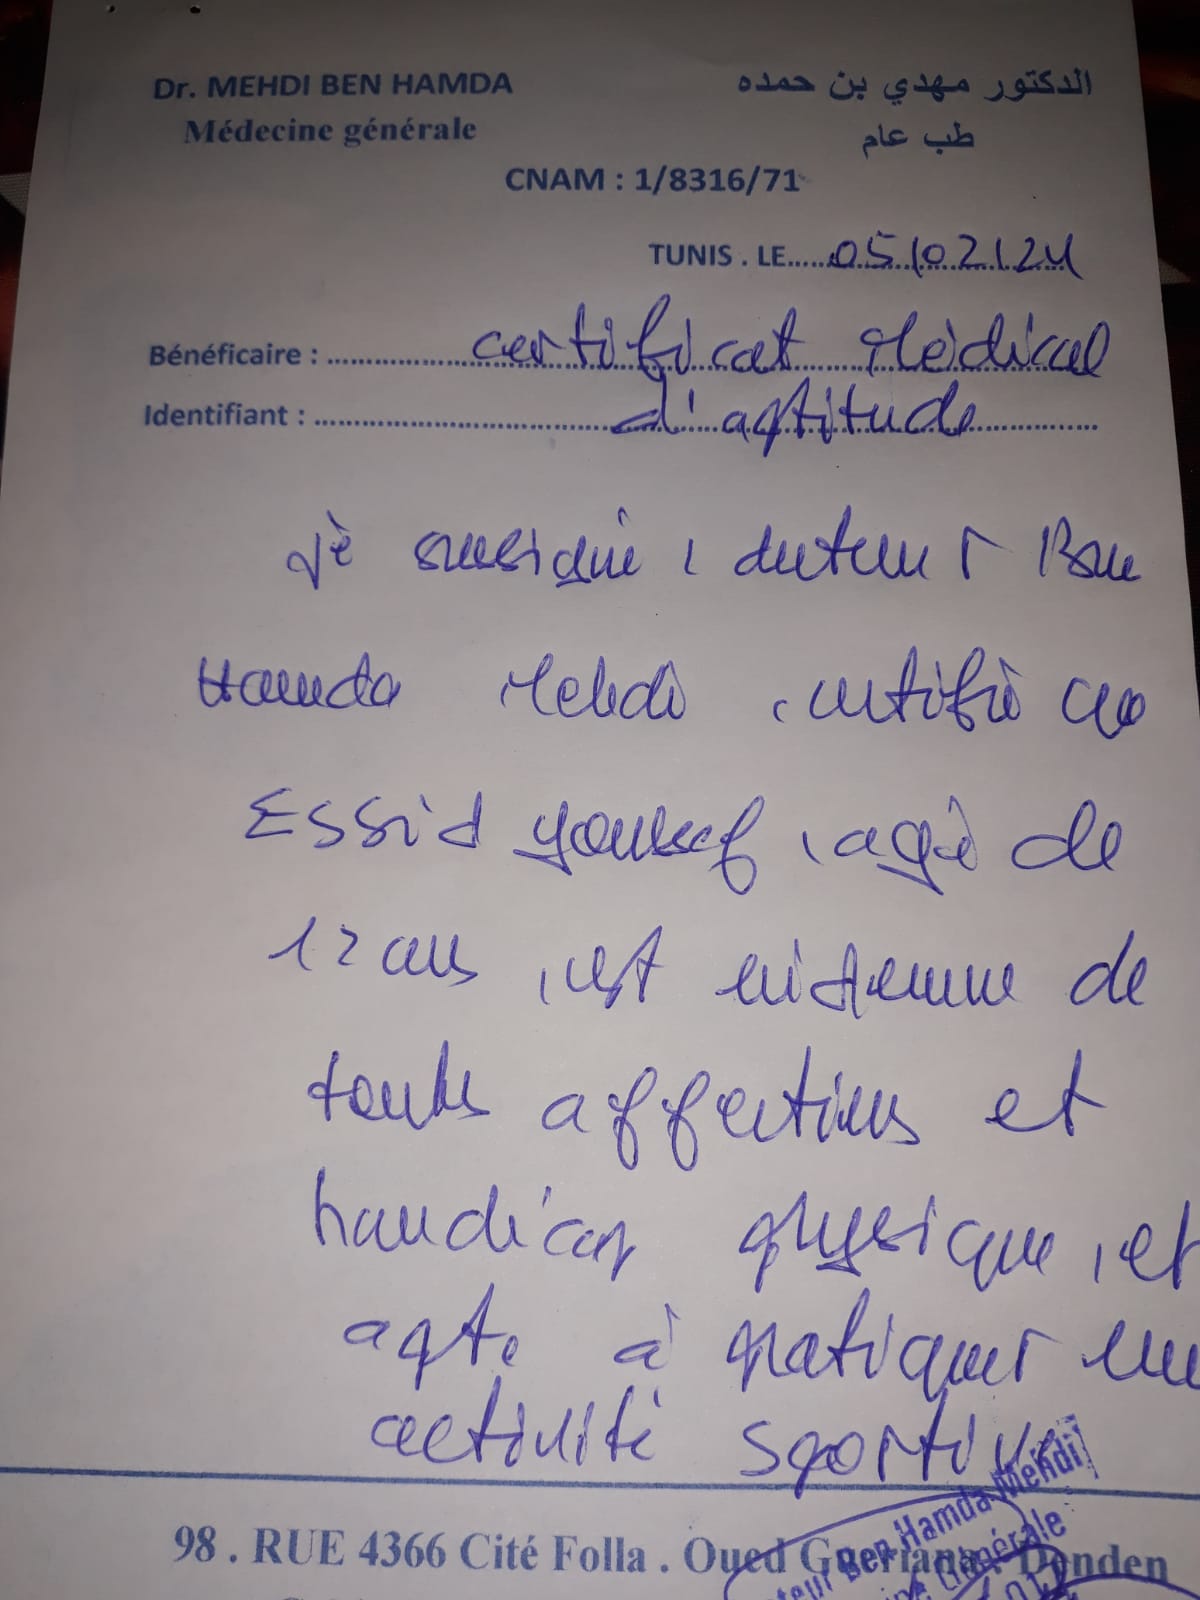 Dr. MEHDI BEN HAMDA
الدكتور مهدي بن حمده
Médecine générale
طب عام
CNAM : 1/8316/71
TUNIS . LE......05/02/24
Bénéficaire : .................. certificat Médical
Identifiant : .................. d'aptitude
Je sousigné, docteur Ben
Hamda Mehdi, certifie que
Essid Youssef, agé de
12 ans, est indemne de
toutes affections et
handicap physique, et
apte à pratiquer une
activité sportive
98 . RUE 4366 Cité Folla . Oued Gueriana . Denden
Docteur Ben Hamda Mehdi
Générale